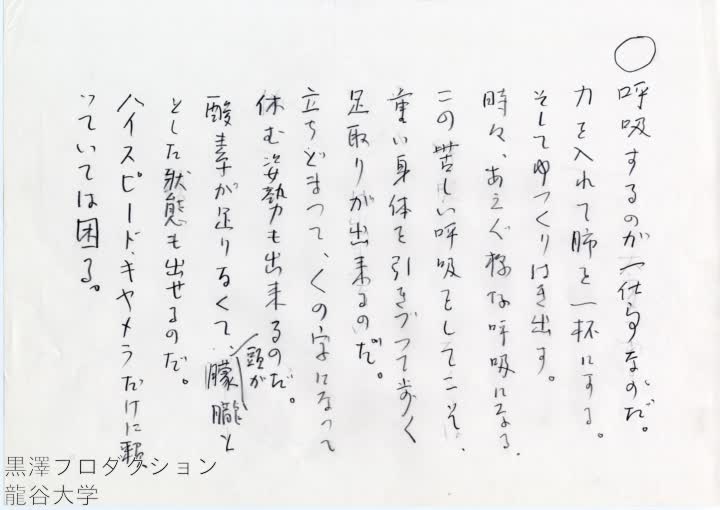 ○
呼吸するのが一仕事なのだ。
力を入れて肺を一杯にする。
そしてゆっくりはき出す。
時々、あえぐ様な呼吸になる。
この苦しい呼吸をしてこそ、
重い身体を引きづつて歩く
足取りが出来るのだ。
立ちどまつて、くの字になって
休む姿勢も出来るのだ。
酸素が足りなくて、頭が朦朧と
とした狀態も出せるのだ。
ハイスピード・キヤメラだけに頼
っていては困る。
黒澤プロダクション
龍谷大学